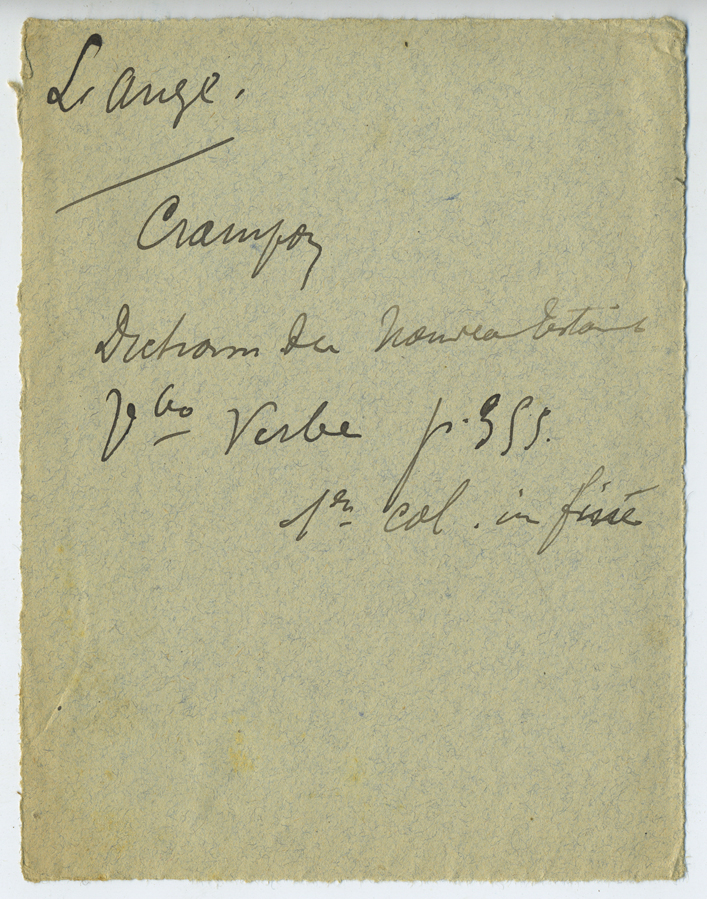 L'Ange.
Crampon
Dictionn du Nouveau Testamt
Vbo Verbe p. 355.
1re col. in fine